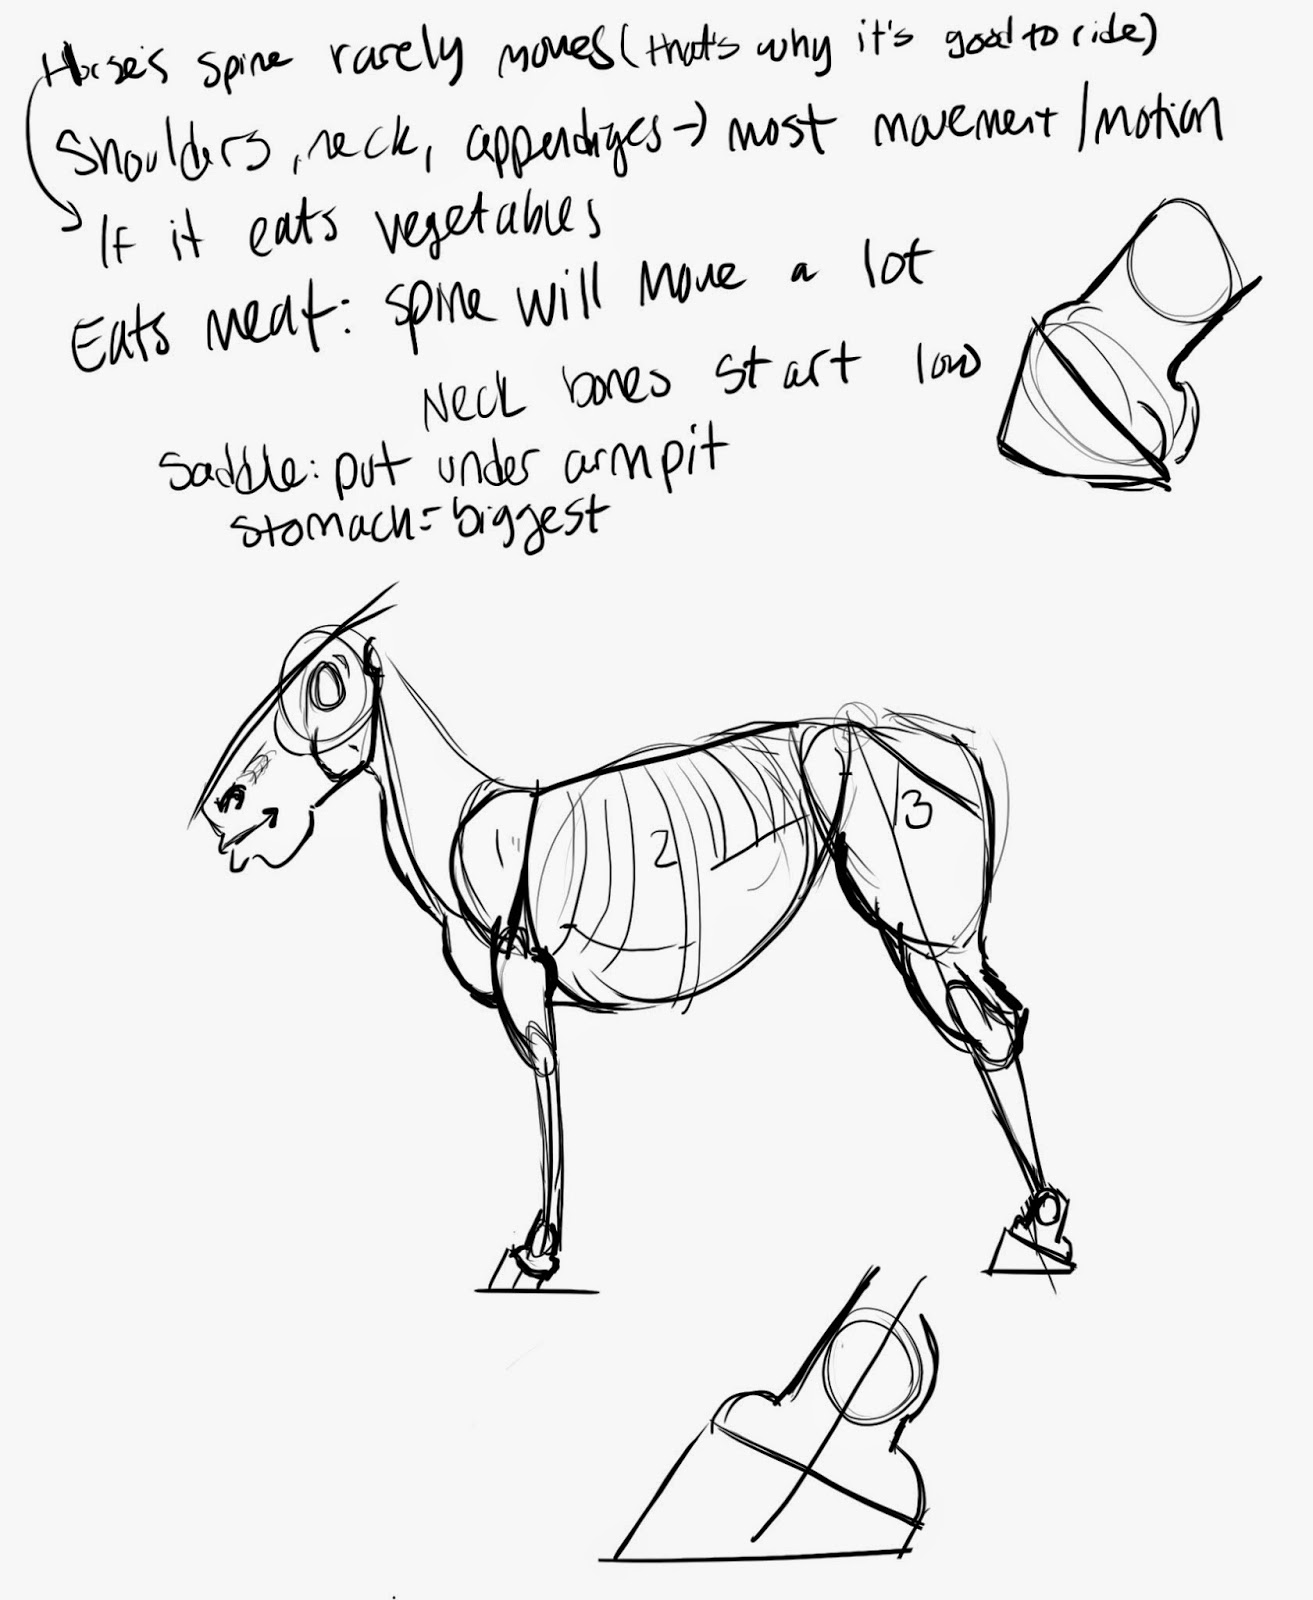 Horse's spine rarely moves (that's why it's good to ride)
Shoulders, neck, appendiges → most movement/motion
If it eats vegetables
Eats meat: spine will move a lot
Neck bones start low
Saddle: put under armpit
Stomach = biggest
1 2 3